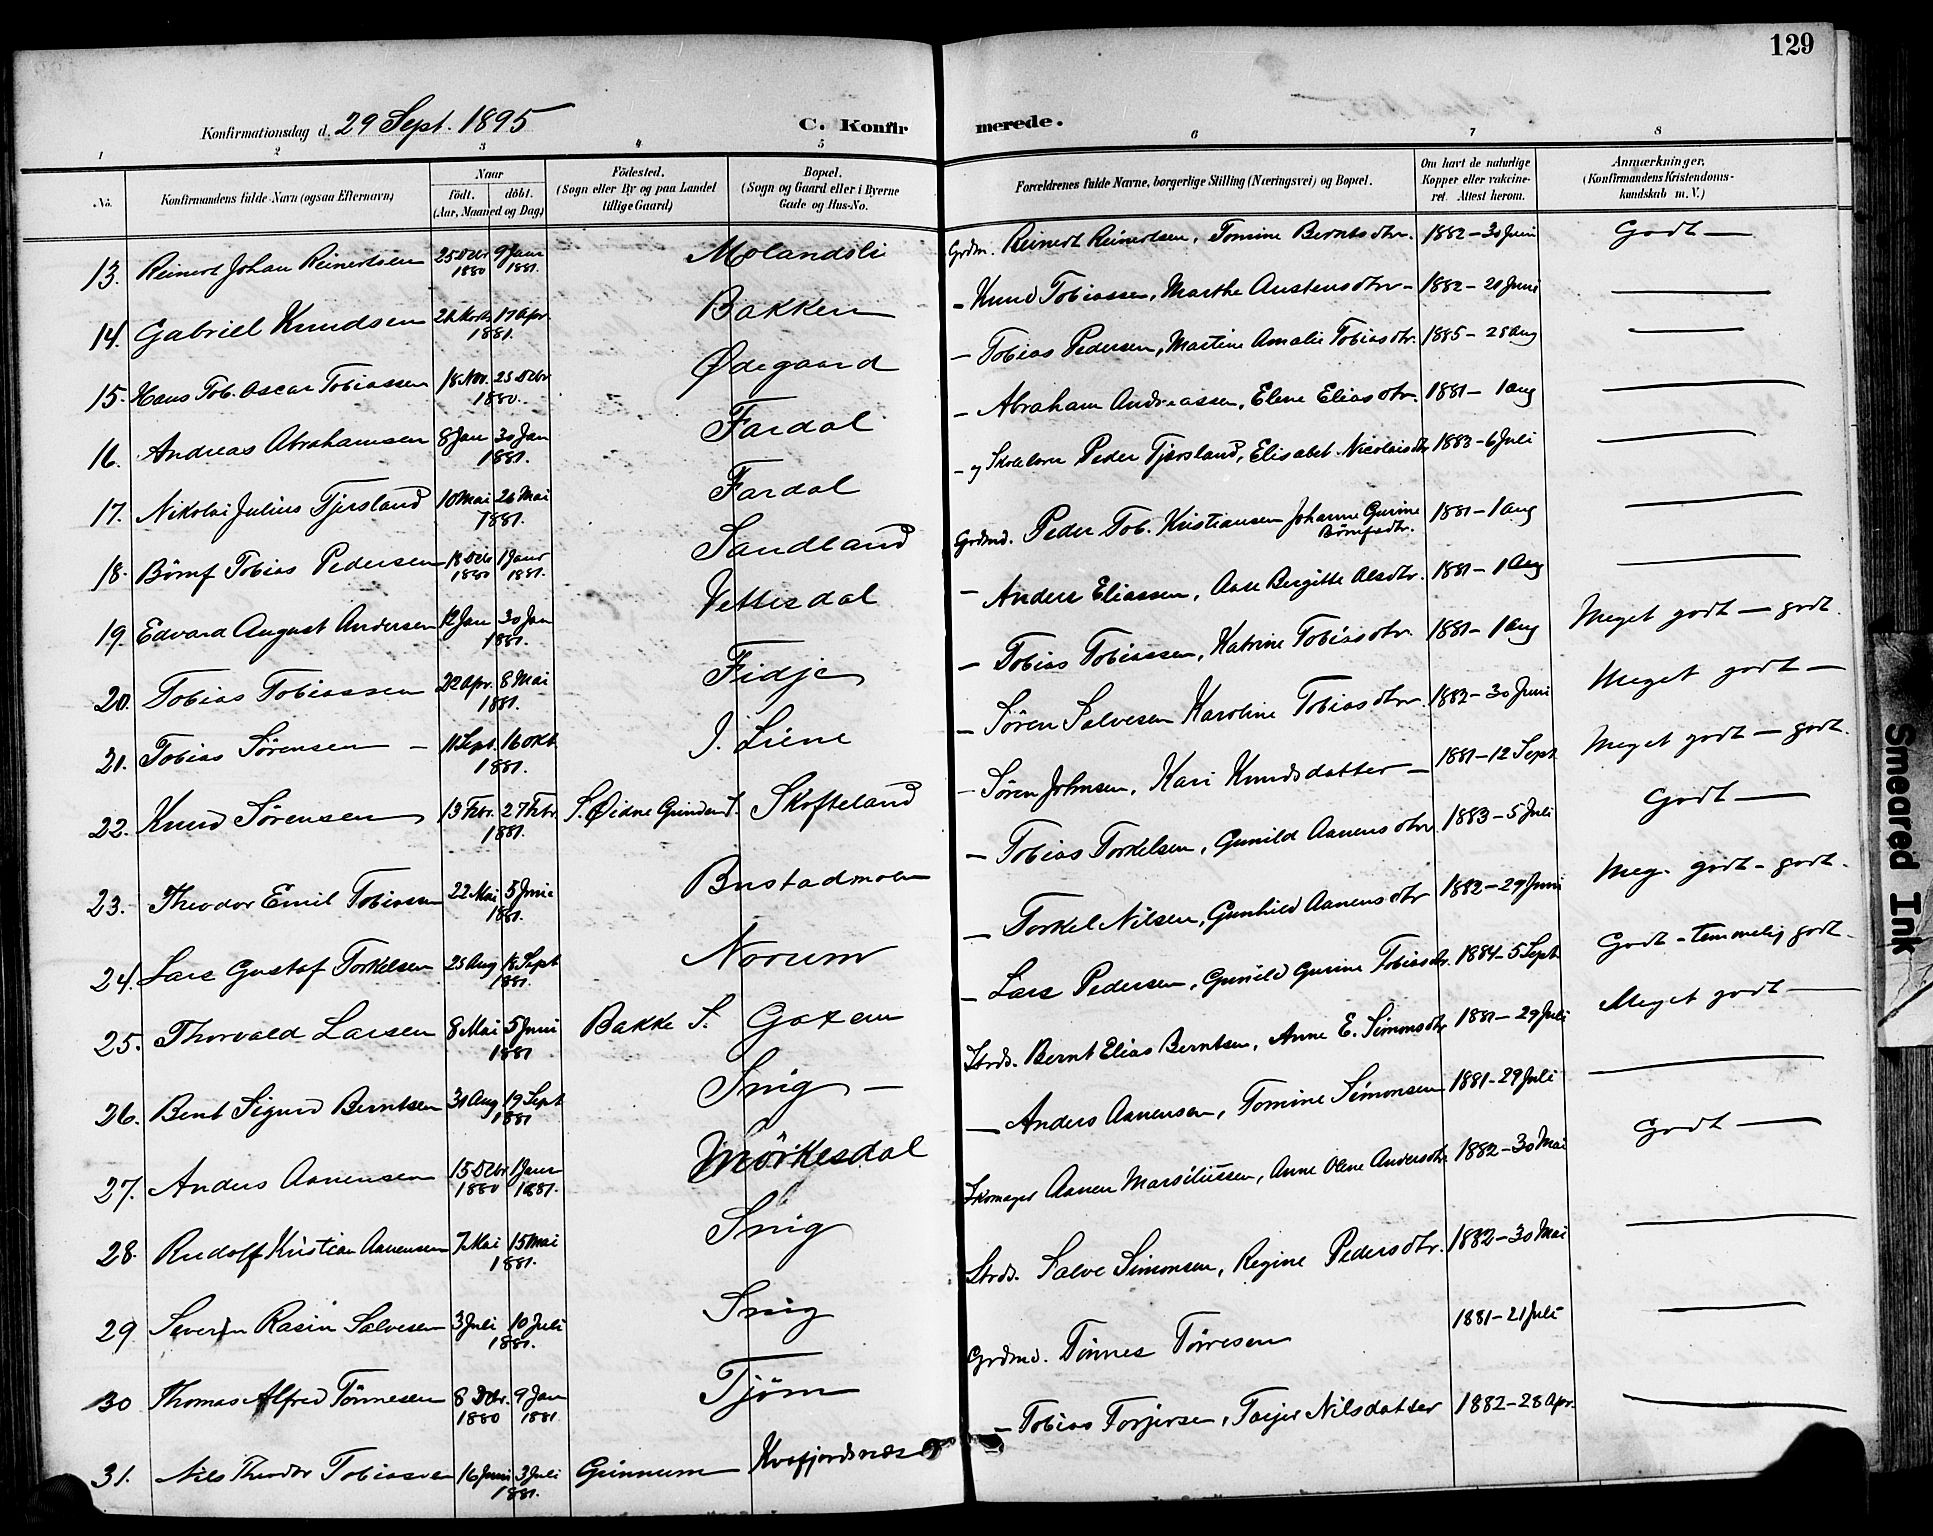 129
Konfirmationsdag d. 29 Sept. 1895 C. Konfirmerede.
1 2 3 4 5 6 7 8
No. Konfirmandens fulde Navn (ogsaa Efternavn) Naar födt. döbt. (Aar, Maaned og Dag) Födested. (Sogn eller By og paa Landet tillige Gaard) Bopæl. (Sogn og Gaard eller i Byerne Gade og Hus-No. Forældrenes fulde Navne, borgerlige Stilling (Næringsvei) og Bopæl. Om havt de naturlige Kopper eller vaccineret. Attest herom. Anmærkninger. (Konfirmandens Kristendomskundskab m. V.)
13. Reinert Johan Reinertsen 25 Debr 1880 9 Janr 1881. Molandsli Grdm. Reinert Reinertsen, Tomine Berntsdtr. 1882 - 30 Juni Godt —
14. Gabriel Knudsen 17 Apr. 1881. Bakken - Knud Tobiassen, Marthe Austensdtr - 1882 - 20 Juni —
15. Hans Tob. Oscar Tobiassen 18 Nov. 25 Debr 1880. Ødegaard - Tobias Pedersen, Martine Amalie Tobiasdtr. 1885 - 28 Aug —
16. Andreas Abrahamsen 8 Jan 30 Jan 1881. Fardal - Abraham Andreassen, Elene Eliasdtr. 1881 - 1 Aug —
17. Nikolai Julius Tjersland 10 Mai 26 Mai 1881. Fardal - og Skolelærer Peder Tjersland, Elisabet Nicolaisdtr 1883 - 6 Juli —
18. Börnf Tobias Pedersen 18 Debr 1880 1 Janr 1881. Sandland Grdmd. Peder Tob. Kristiansen Johanne Gurine Börnfsdtr. 1881 - 1 Aug —
19. Edvard August Andersen 12 Jan 30 Jan 1881. Vettesdal - Anders Eliassen, Aase Bergitte Alsdtr. 1881 - 1 Aug —
20. Tobias Tobiassen 22 Apr. 8 Mai 1881. Fidje - Tobias Tobiassen, Katrine Tobiasdtr. 1881 - 1 Aug Meget godt — godt.
21. Tobias Sørensen - 11 Sept. 16 Okt 1881. I. Liene - Sören Salvesen Karoline Tobiasdtr. 1882 - 30 Juni Meget godt —
22. Knud Sørensen 13 Febr. 27 Febr. 1881. S. Øidne Skofteland - Sören Johnsen, Kari Knudsdatter - 1881 - 12 Sept Meget godt — godt.
23. Theodor Emil Tobiassen 22 Mai 5 Juni 1881. Bustadmoen - Tobias Torkelsen, Gunild Aanensdtr 1883 - 5 Juli Godt —
24. Lars Gustaf Torkelsen 25 Aug 18 Sept 1881. Norum - Torkel Nilsen, Gunhild Aanensdtr 1882 - 29 Juni Meg. godt - godt.
25. Thorvald Larsen 8 Mai 5 Juni 1881 Bakke S. Gaxem - Lars Pedersen, Gunild Gurine Tobiasdtr. 1884 - 5 Sept Godt - temmelig godt.
26. Bent Sigurd Berntsen 31 Aug 19 Sept 1881 Snig - Strds. Bernt Elias Berntsen, Anne E. Simonsdtr 1881 - 29 Juli Meget godt —
27. Anders Aanensen 15 Debr 1880 1 Janr 1881. Mörkesdal - Anders Aanensen, Tomine Simonsen 1881 - 29 Juli —
28. Rudolf Kristian Aanensen 7 Mai 15 Mai 1881. Snig Skomager Aanen Marseliussen, Anne Olene Andersdtr. 1882 - 30 Mai Godt —
29 Severin Rasin Salvesen 3 Juli 10 Juli 1881. Snig Strds. Salve Simonsen, Regine Pedersdtr. 1882 - 30 Mai —
30 Thomas Alfred Tönnesen 8 Debr. 1880 9 Jan 1881 Tjöm Grdmd. Tönnes Törresen 1881 - 21 Juli —
31. Nils Theodor Tobiassen 16 Juni 3 Juli 1881. Grinnum Kvafjordsnæs - Tobias Torjersen, Torjer Nilsdatter 1882 - 28 Apr. —
Smeared Ink